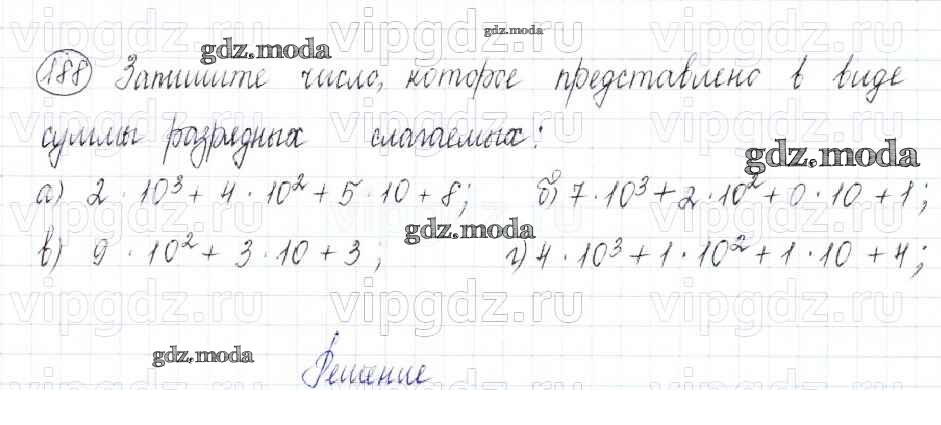 gdz.moda
gdz.moda
188 Запишите число, которое представлено в виде
суммы разрядных слагаемых:
gdz.moda
а) 2 · 10³ + 4 · 10² + 5 · 10 + 8; б) 7 · 10³ + 2 · 10² + 0 · 10 + 1;
gdz.moda
в) 9 · 10² + 3 · 10 + 3; г) 4 · 10³ + 1 · 10² + 1 · 10 + 4;
vipgdz.ru vipgdz.ru vipgdz.ru
gdz.moda
Решение